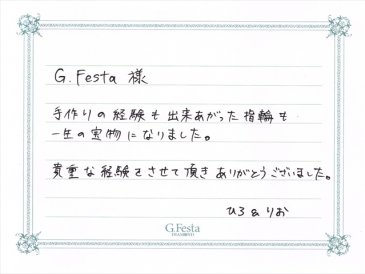 G.Festa 様
手作りの経験も出来あがった指輪も
一生の宝物になりました。
貴重な経験をさせて頂きありがとうございました。
ひろ & りお
G.Festa